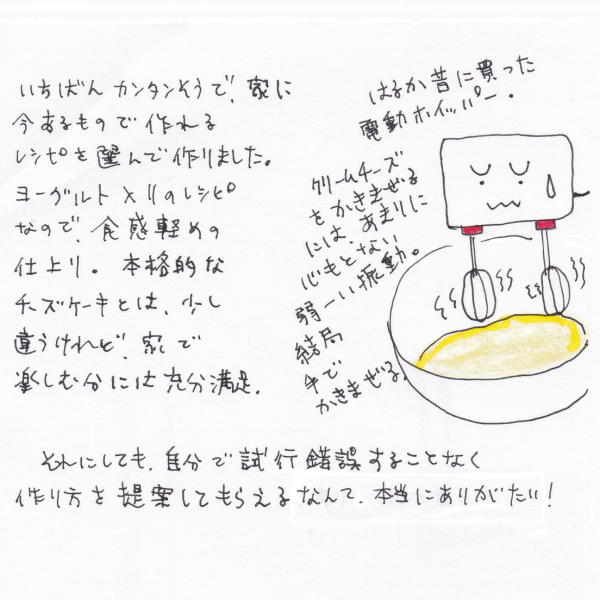 いちばんカンタンそうで、家に
今あるもので作れる
レシピを選んで作りました。
ヨーグルト入りのレシピ
なので、食感軽めの
仕上り。本格的な
チーズケーキとは、少し
違うけれど、家で
楽しむ分には充分満足。
はるか昔に買った
電動ホイッパー。
クリームチーズ
をかきまぜる
には、あまりに
心もとない
弱ーい振動。
結局
手で
かきまぜる。
それにしても、自分で試行錯誤することなく
作り方を提案してもらえるなんて、本当にありがたい!